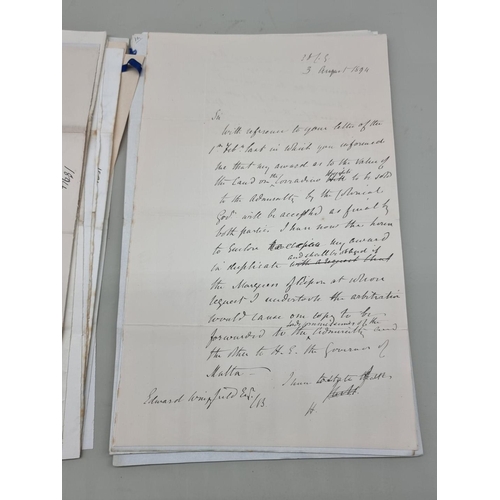 3 August 1894
Sir
With reference to your letter of the
1st Feb last in which you informed
me that my award as to the value of
the land on the Corradino Heights to be sold
to the Admiralty by the Colonial
Govt will be accepted as final by
both parties. I have now the honor
to enclose my award
in duplicate and shall be obliged if
the Marquess of Ripon at whose
request I undertook the arbitration
would cause one copy to be
forwarded to the Lords Commissioners of the Admiralty and
the other to H. E. the Governor of
Malta
I have
Edward Wingfield Esq CB
1894